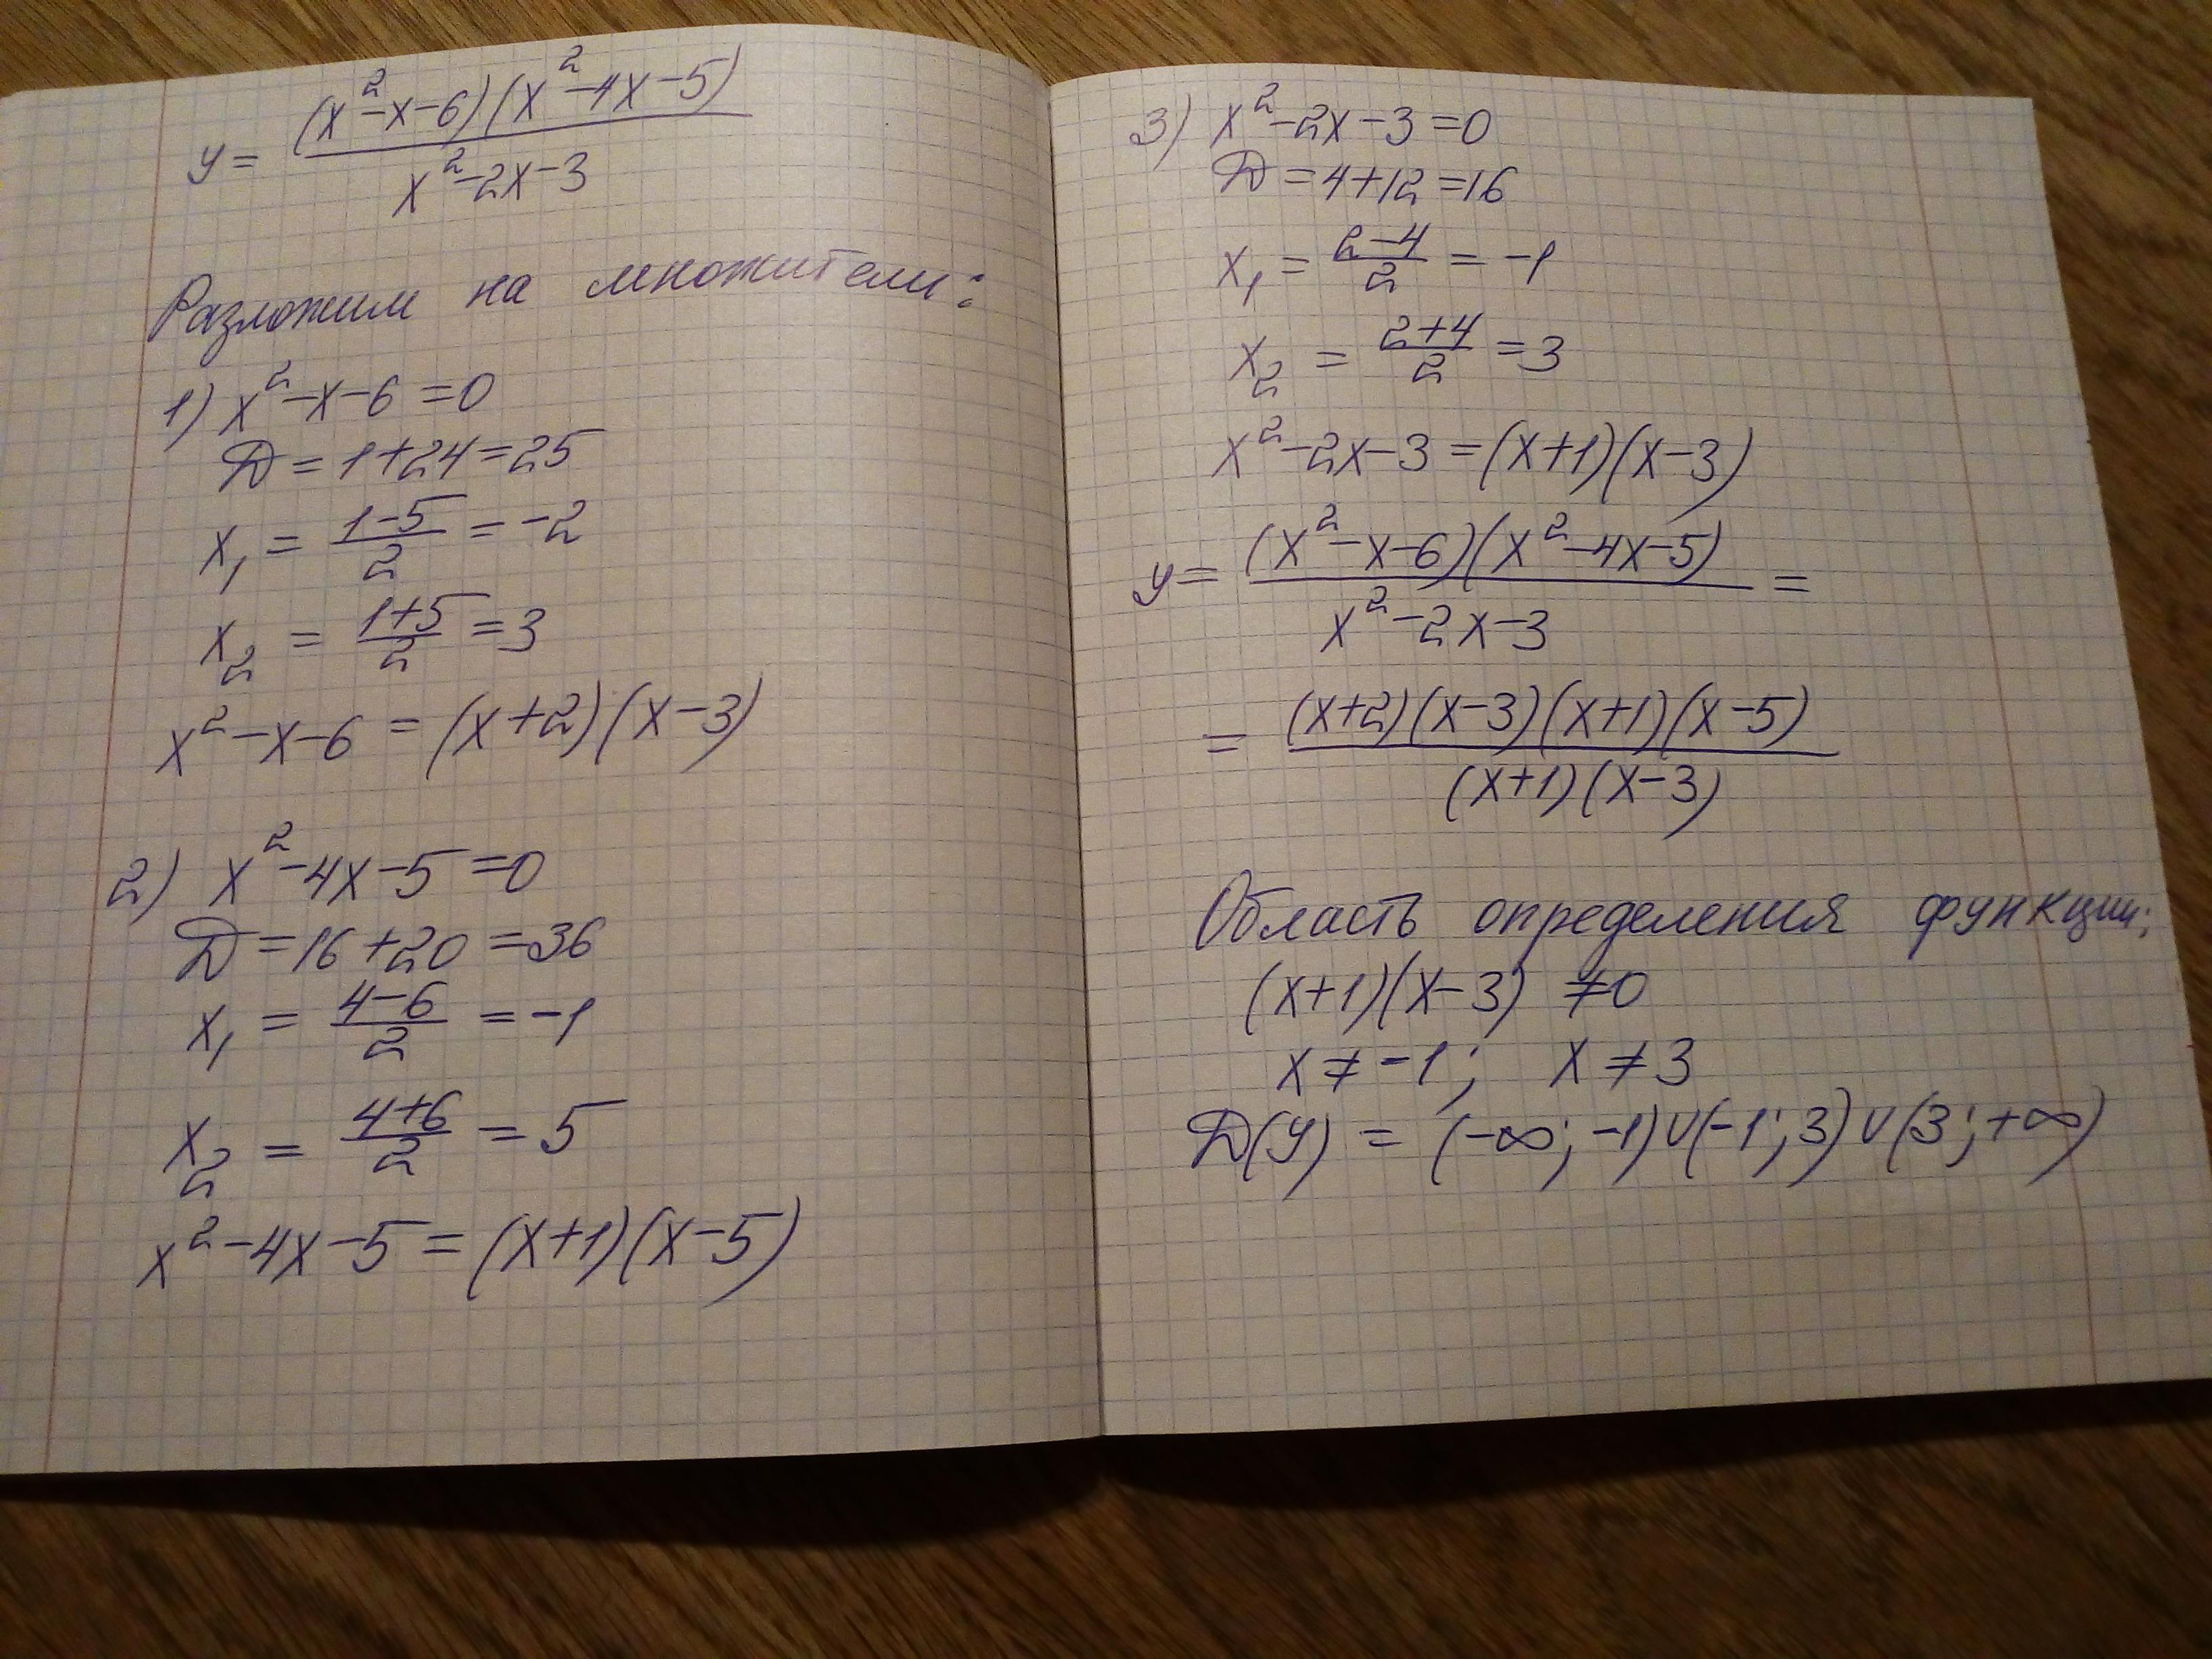 y = (x²-x-6)(x²-4x-5) / x²-2x-3
Разложим на множители:
1) x²-x-6=0
D=1+24=25
x₁ = (1-5)/2 = -2
x₂ = (1+5)/2 = 3
x²-x-6 = (x+2)(x-3)
2) x²-4x-5=0
D=16+20=36
x₁ = (4-6)/2 = -1
x₂ = (4+6)/2 = 5
x²-4x-5=(x+1)(x-5)
3) x²-2x-3=0
D=4+12=16
x₁ = (2-4)/2 = -1
x₂ = (2+4)/2 = 3
x²-2x-3=(x+1)(x-3)
y = (x²-x-6)(x²-4x-5) / x²-2x-3 =
= (x+2)(x-3)(x+1)(x-5) / (x+1)(x-3)
Область определения функции:
(x+1)(x-3) ≠0
x≠-1; x≠3
D(y) = (-∞;-1)∪(-1;3)∪(3;+∞)